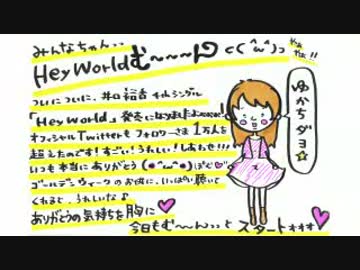 みんなちゃんっっ
Hey Worldむ~~~ん c(^ω^)っ
ついについに、井口裕香 4thシングル
「Hey World」発売になりましたよ
オフィシャルTwitterもフォロワーさま1万人を
超えたのです!すごい!うれしい!しあわせ!!!
いつも本当にありがとう(●^ω^●)ぽぐ♡
ゴールデンウィークのお供に、いっぱい聴いて
くれると、うれしいな♪
ありがとうの気持ちを胸に♡
今日もむ~~んっっと スタートォォォ♡
ゆかちダヨ☆